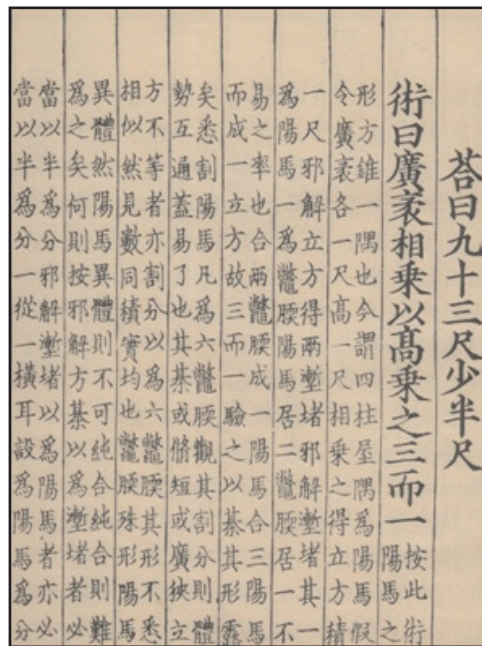 荅曰九十三尺少半尺
術曰廣袤相乗以髙乗之三而一
按此術
陽馬之
形方錐一隅也今謂四柱屋隅為陽馬假
令廣袤各一尺高一尺相乗之得立方積
一尺邪解立方得兩壍堵邪解壍堵其一
為陽馬一為鼈腝陽馬居二鼈腝居一不
易之率也合兩鼈腝成一陽馬合三陽馬
而成一立方故三而一驗之以棊其形露
矣悉割陽馬凡為六鼈腝觀其割分則體
勢互通蓋易了也其棊或脩短或廣狹立
方不等者亦割分以為六鼈腝其形不悉
相似然見數同積實均也鼈腝殊形陽馬
異體然陽馬異體則不可純合純合則難
為之矣何則按邪解方棊以為壍堵者必
當以半為分邪解壍堵以為陽馬者亦必
當以半為分一從一橫耳設為陽馬為分